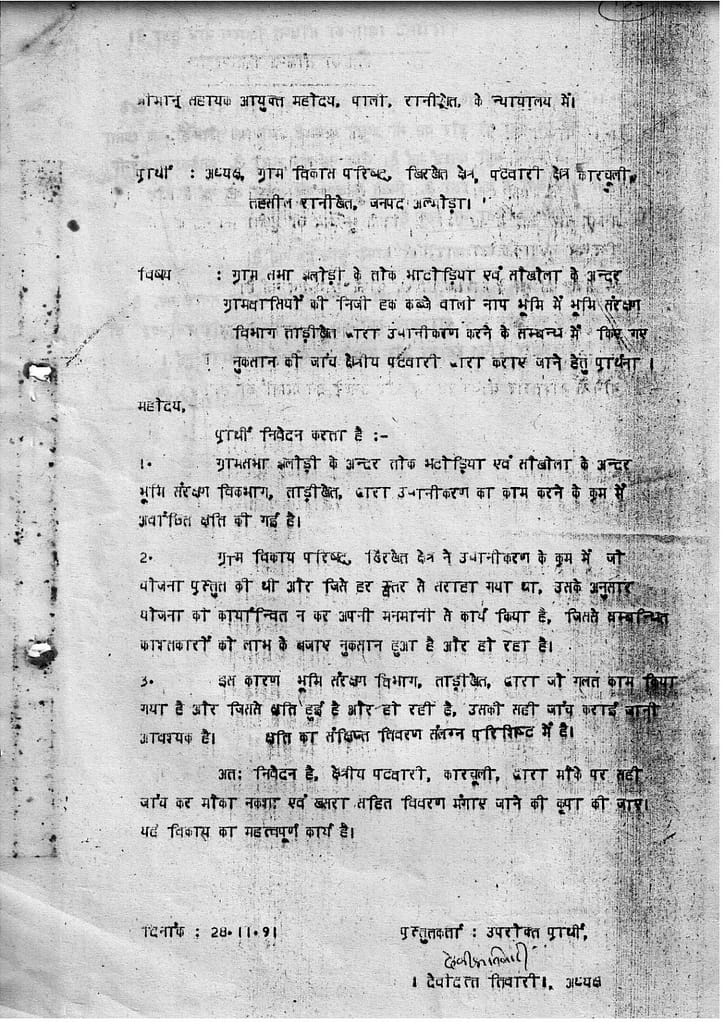 श्रीमान् सहायक आयुक्त महोदय, पाली, रानीखेत, के न्यायालय में।
प्रार्थी : अध्यक्ष, ग्राम विकास परिषद, खिरखेत क्षेत्र, पटवारी क्षेत्र कारचूली,
तहसील रानीखेत, जनपद अल्मोड़ा।
विषय : ग्राम सभा झलोड़ी के तोक भाटोड़िया एवं सौखोला के अन्दर
ग्रामवासियों की निजी हक कब्जे वाली नाप भूमि में भूमि संरक्षण
विभाग ताड़ीखेत द्वारा उधानीकरण करने के सम्बन्ध में किए गए
नुकसान की जांच क्षेत्रीय पटवारी द्वारा कराए जाने हेतु प्रार्थना ।
महोदय,
प्रार्थी निवेदन करता है :-
१. ग्रामसभा झलोड़ी के अन्दर तोक भटोड़िया एवं सौखोला के अन्दर
भूमि संरक्षण विकभाग, ताड़ीखेत, द्वारा उधानीकरण का काम करने के क्रम में
अवांछित क्षति की गई है।
२. ग्राम विकाय परिषद, खिरखेत क्षेत्र ने उधानीकरण के क्रम में जो
योजना प्रस्तुत की थी और जिसे हर स्तर से सराहा गया था, उसके अनुसार
योजना को कार्यान्वित न कर अपनी मनमानी से कार्य किया है, जिससे सम्बन्धित
काश्तकारों को लाभ के बजाए नुकसान हुआ है और हो रहा है।
३. इस कारण भूमि संरक्षण विभाग, ताड़ीखेत, द्वारा जो गलत काम किया
गया है और जिससे क्षति हुई है और हो रही है, उसकी सही जांच कराई जानी
आवश्यक है। क्षति का संक्षिप्त विवरण संलग्न परिशिष्ट में है।
अतः निवेदन है, क्षेत्रीय पटवारी, कारचूली, द्वारा मौके पर सही
जांच कर मौका नक्शा एवं खसरा सहित विवरण मंगाए जाने की कृपा की जाए।
यह विकास का महत्वपूर्ण कार्य है।
दिनांक : 28.11.91 प्रस्तुतकर्ता : उपरोक्त प्रार्थी,
। देवीदत्त तिवारी।, अध्यक्ष